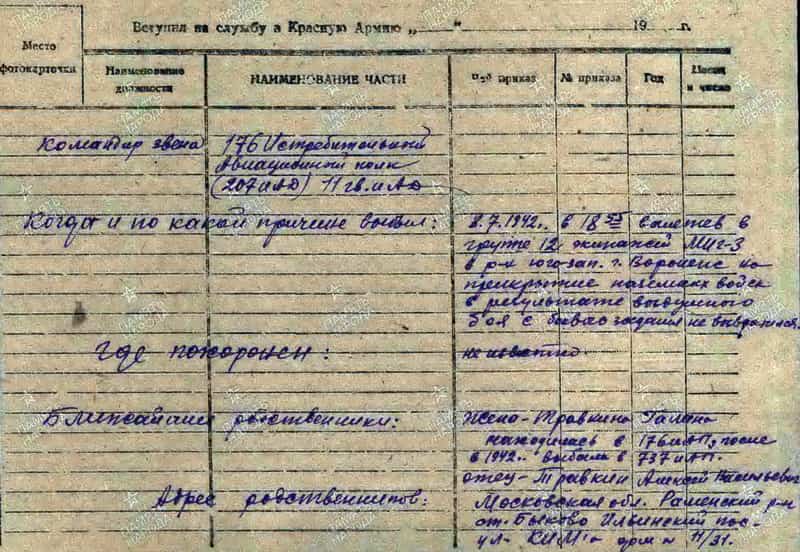 Вступил на службу в Красную Армию „ “ 19 г.
Место фотокарточки
Наименование должности
НАИМЕНОВАНИЕ ЧАСТИ
Чей приказ
№ приказа
Год
Месяц и число
Командир звена
176 Истребительный
Авиационный полк
(207 иАД) 11 гв. иАД
Когда и по какой причине выбыл:
8.7.1942г. в 18 55 вылетев в
группе 12 экипажей МИГ-3
в р-н юго-зап. г. Воронеж на
прикрытие наземных войск
в результате воздушного
боя с боевого задания не возвратился.
Где похоронен:
не известно.
Ближайшие родственники:
Жена - Травкина Галина
находилась в 176 иАП, после
в 1942г. выбыла в 737 иАП.
отец - Травкин Алексей Васильевич
Адрес родственников:
Московская обл. Раменский р-н
ст. Быково Ильинский пос.
ул. КИМ'а дом № 11/31.
ПАМЯТЬ НАРОДА